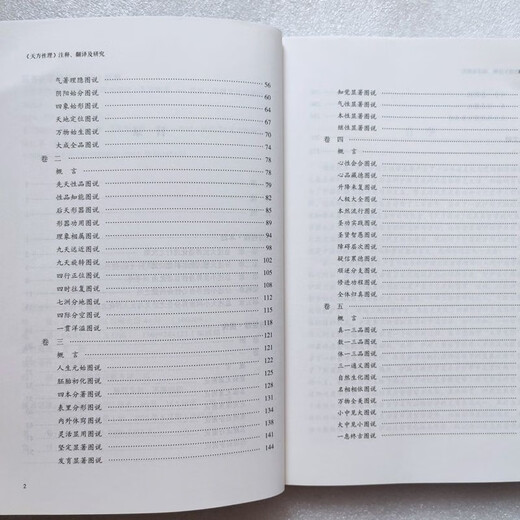 《天方性理》注释、翻译及研究
气著理隐图说 56
阴阳始分图说 60
四象始形图说 64
天地定位图说 67
万物始生图说 70
大成全品图说 74
卷 二 78
概 言 78
先天性品图说 79
性品知能图说 82
后天形器图说 85
形器功用图说 89
理象相属图说 94
九天远近图说 97
九天旋转图说 100
四行正位图说 102
四时往复图说 106
七洲分地图说 109
四际分空图说 115
一贯洋溢图说 118
卷 三 121
概 言 121
人生元始图说 122
胚胎初化图说 124
四本分著图说 128
表里分形图说 131
内外体窍图说 134
灵活显用图说 138
坚定显著图说 141
发育显著图说 144
2
知觉显著图说
气性显著图说
本性显著图说
继性显著图说
卷 四
概 言
心性会合图说
心品藏德图说
升降来复图说
人极大全图说
本然流行图说
圣功实践图说
圣贤智愚图说
障碍层次图说
疑信累德图说
顺逆分支图说
修进功程图说
全体归真图说
卷 五
概 言
真一三品图说
数一三品图说
体一三品图说
三一通义图说
自然生化图说
名相相依图说
万物全美图说
小中见大图说
大中见小图说
一息终古图说